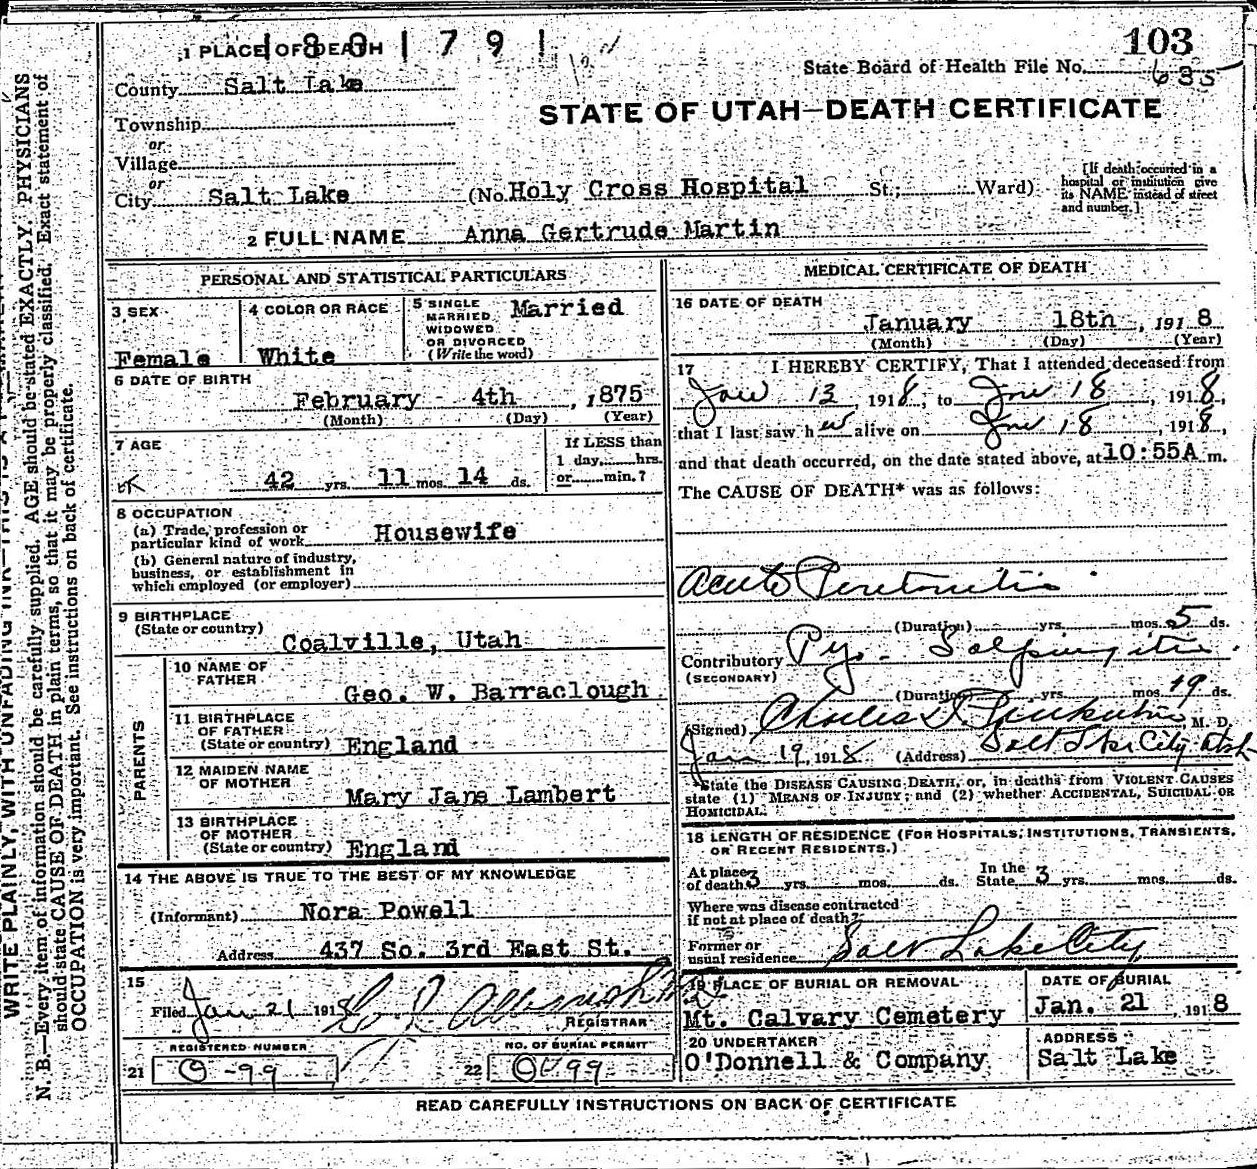 1801791
1 PLACE OF DEATH
103
State Board of Health File No. 635
County Salt Lake
STATE OF UTAH—DEATH CERTIFICATE
Township
or
Village
or
City Salt Lake (No. Holy Cross Hospital St.; Ward)
[If death occurred in a
hospital or institution give
its NAME instead of street
and number.]
2 FULL NAME Anna Gertrude Martin
PERSONAL AND STATISTICAL PARTICULARS
3 SEX
Female
4 COLOR OR RACE
White
5 SINGLE
MARRIED
WIDOWED
OR DIVORCED
(Write the word)
Married
6 DATE OF BIRTH
February - 4th, 1875
(Month) (Day) (Year)
7 AGE
42 yrs. 11 mos. 14 ds.
If LESS than
1 day,......hrs.
or......min.?
8 OCCUPATION
(a) Trade, profession or
particular kind of work Housewife
(b) General nature of industry,
business, or establishment in
which employed (or employer)
9 BIRTHPLACE
(State or country)
Coalville, Utah
PARENTS
10 NAME OF
FATHER
Geo. W. Barraclough
11 BIRTHPLACE
OF FATHER
(State or country) England
12 MAIDEN NAME
OF MOTHER
Mary Jane Lambert
13 BIRTHPLACE
OF MOTHER
(State or country) England
14 THE ABOVE IS TRUE TO THE BEST OF MY KNOWLEDGE
(Informant) Nora Powell
Address 437 So. 3rd East St.
15
Filed Jan 21 1918
REGISTRAR
REGISTERED NUMBER
21 O-99
NO. OF BURIAL PERMIT
22 O 99
MEDICAL CERTIFICATE OF DEATH
16 DATE OF DEATH
January 18th, 1918
(Month) (Day) (Year)
17 I HEREBY CERTIFY, That I attended deceased from
Jan 13, 1918, to Jan 18, 1918,
that I last saw her alive on Jan 18, 1918,
and that death occurred, on the date stated above, at 10:55A m.
The CAUSE OF DEATH* was as follows:
Acute Peritonitis
(Duration) yrs. mos. 5 ds.
Contributory Pyo-Salpingitis
(SECONDARY)
(Duration) yrs. mos. 19 ds.
(Signed) Charles M. D.
Jan 19, 1918 (Address) Salt Lake City Utah
*State the DISEASE CAUSING DEATH, or, in deaths from VIOLENT CAUSES
state (1) MEANS OF INJURY; and (2) whether ACCIDENTAL, SUICIDAL OR
HOMICIDAL.
18 LENGTH OF RESIDENCE (FOR HOSPITALS, INSTITUTIONS, TRANSIENTS,
OR RECENT RESIDENTS.)
At place
of death 3 yrs. mos. ds.
In the
State 3 yrs. mos. ds.
Where was disease contracted
if not at place of death?
Former or
usual residence Salt Lake City
19 PLACE OF BURIAL OR REMOVAL
Mt. Calvary Cemetery
DATE OF BURIAL
Jan. 21, 1918
20 UNDERTAKER
O'Donnell & Company
ADDRESS
Salt Lake
READ CAREFULLY INSTRUCTIONS ON BACK OF CERTIFICATE
N. B.—Every item of information should be carefully supplied. AGE should be stated EXACTLY. PHYSICIANS
should state CAUSE OF DEATH in plain terms, so that it may be properly classified. Exact statement of
OCCUPATION is very important. See instructions on back of certificate.
WRITE PLAINLY, WITH UNFADING INK—THIS IS A